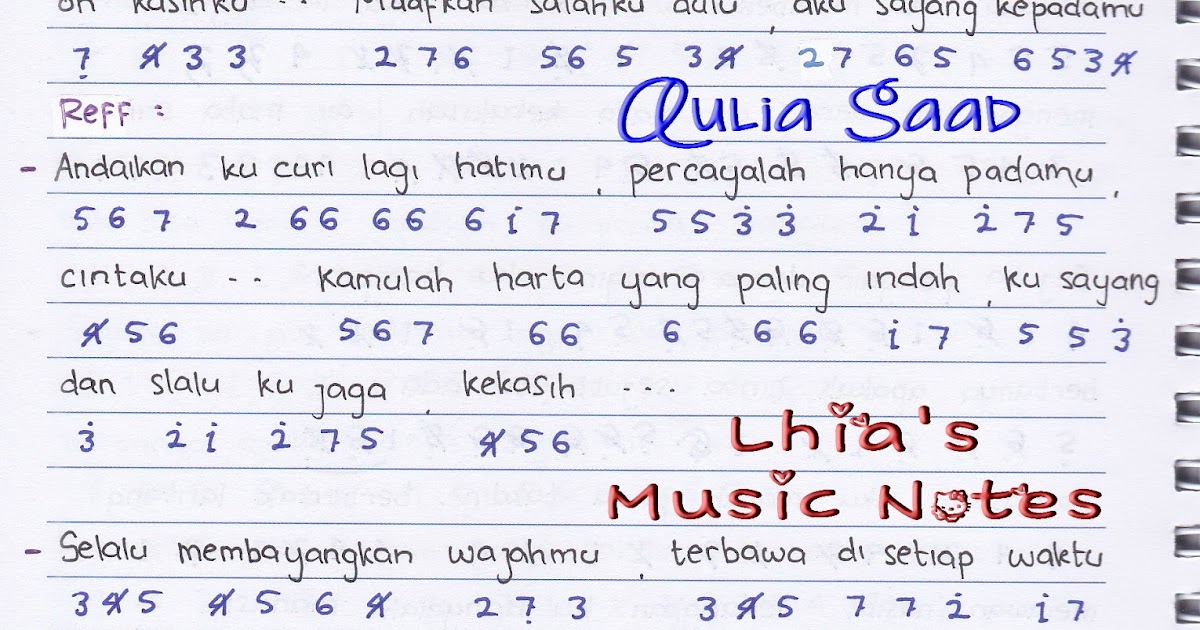 oh kasihku . . . maafkan salahku dulu , aku sayang kepadamu
7̣ 4̸ 3 3 2 7 6 5 6 5 3 4̸ 2 7 6 5 6 5 3 4̸
Reff :
Qulia Saad
- Andaikan ku curi lagi hatimu , percayalah hanya padamu ,
5 6 7 2 6 6 6 6 6 i 7 5 5 3̇ 3̇ 2̇ i 2̇ 7 5
cintaku . . . kamulah harta yang paling indah , ku sayang
4̸ 5 6 5 6 7 6 6 6 6 6 i 7 5 5 3̇
dan slalu ku jaga , kekasih . . .
3̇ 2̇ i 2̇ 7 5 4̸ 5 6
Lhia's
Music Notes
- Selalu membayangkan wajahmu , terbawa di setiap waktu
3 4̸ 5 4̸ 5 6 4̸ 2 7̣ 3 3 4̸ 5 7 7 2̇ i 7